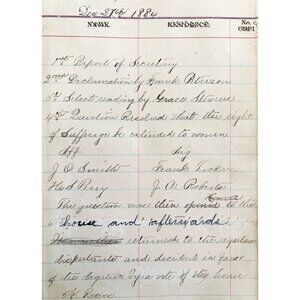 Dec 27th 1884
NAME. RESIDENCE. No. of
1st Report of Secretary
2nd Declamation by Peterson
3d Select reading by Grace Stevens
4th Question Resolved that the right
of Suffrage be extended to women
Aff Neg
J O Smith Frank Tucker
H S Perry J A Roberts
The question was then opened to the
house and afterwards
It was then returned to the regular
disputants and decided in favor
of the negative by a vote of the house
5th